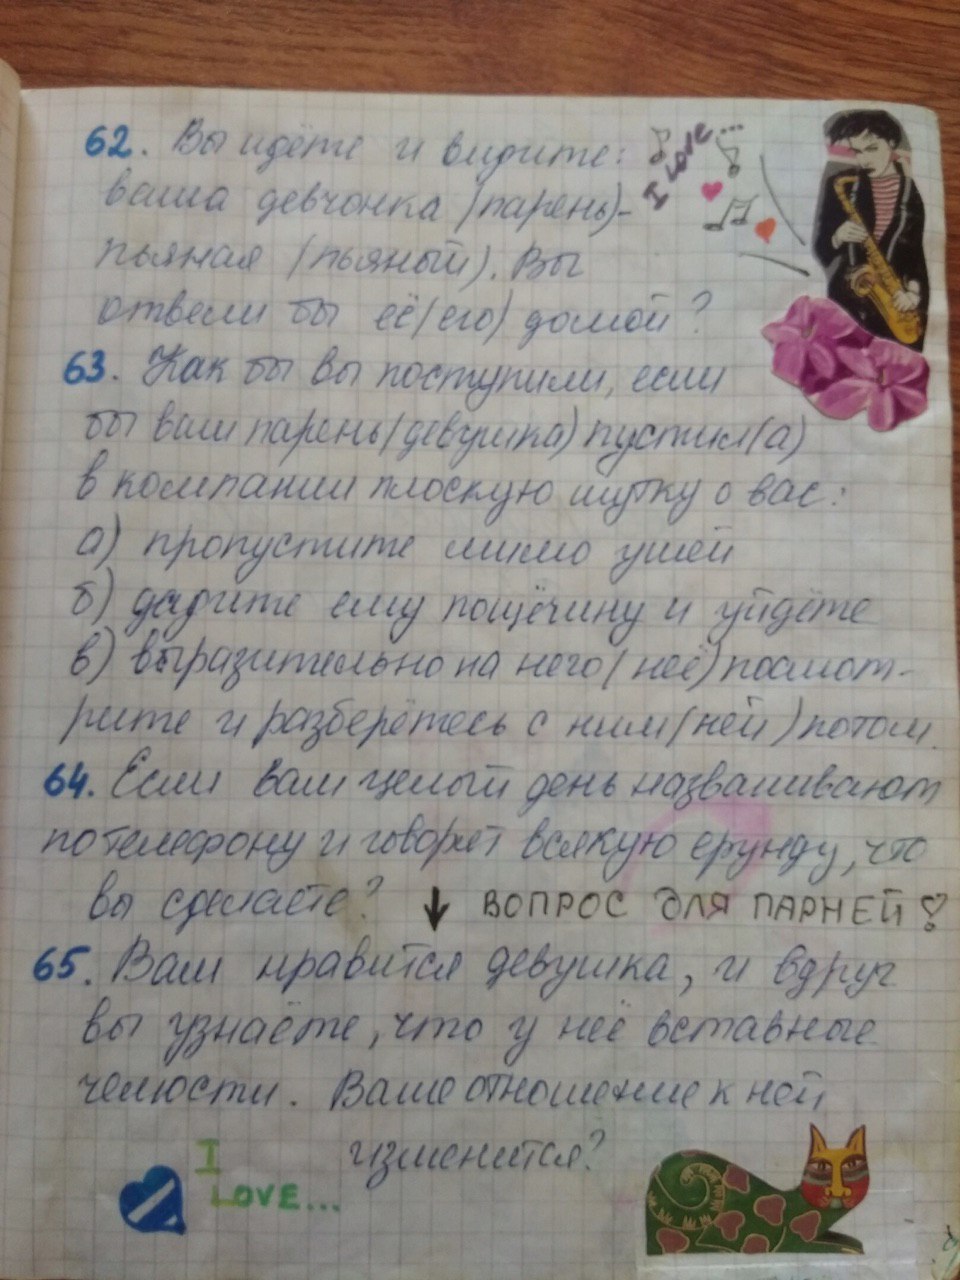 62. Вы идёте и видите:
I LOVE...
ваша девчонка (парень)-
пьяная (пьяный). Вы
отвели бы её(его) домой?
63. Как бы вы поступили, если
бы ваш парень(девушка) пустил(а)
в компании плоскую шутку о вас:
а) пропустите мимо ушей
б) дадите ему пощёчину и уйдёте
в) выразительно на него(неё) посмот-
рите и разберётесь с ним(ней) потом.
64. Если вам целый день названивают
по телефону и говорят всякую ерунду, что
вы сделаете? ↓ ВОПРОС ДЛЯ ПАРНЕЙ!
65. Вам нравится девушка, и вдруг
вы узнаёте, что у неё вставные
челюсти. Ваше отношение к ней
изменится?
I
LOVE...